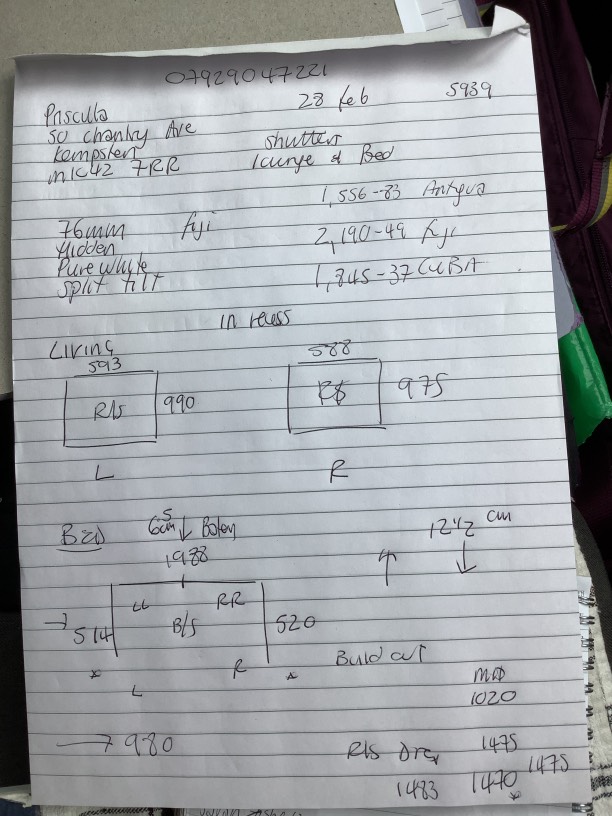 07929047221
28 feb 5939
Priscilla
50 chanky Ave
Kempsten shutters
mK42 7RR lounge & Bed
1,556-83 Antigua
76mm fiji 2,190-49 fiji
Hidden
Pure white 1,845-37 CUBA
split tilt
in recess
Living
593 588
R/s 990 975
L R
BED 5 Bottom 12 1/2 cm
1988
LL RR
514 B/S 520
* R *
L Build out
MID
1020
980
R/s 1475
1483 1470 1475
*